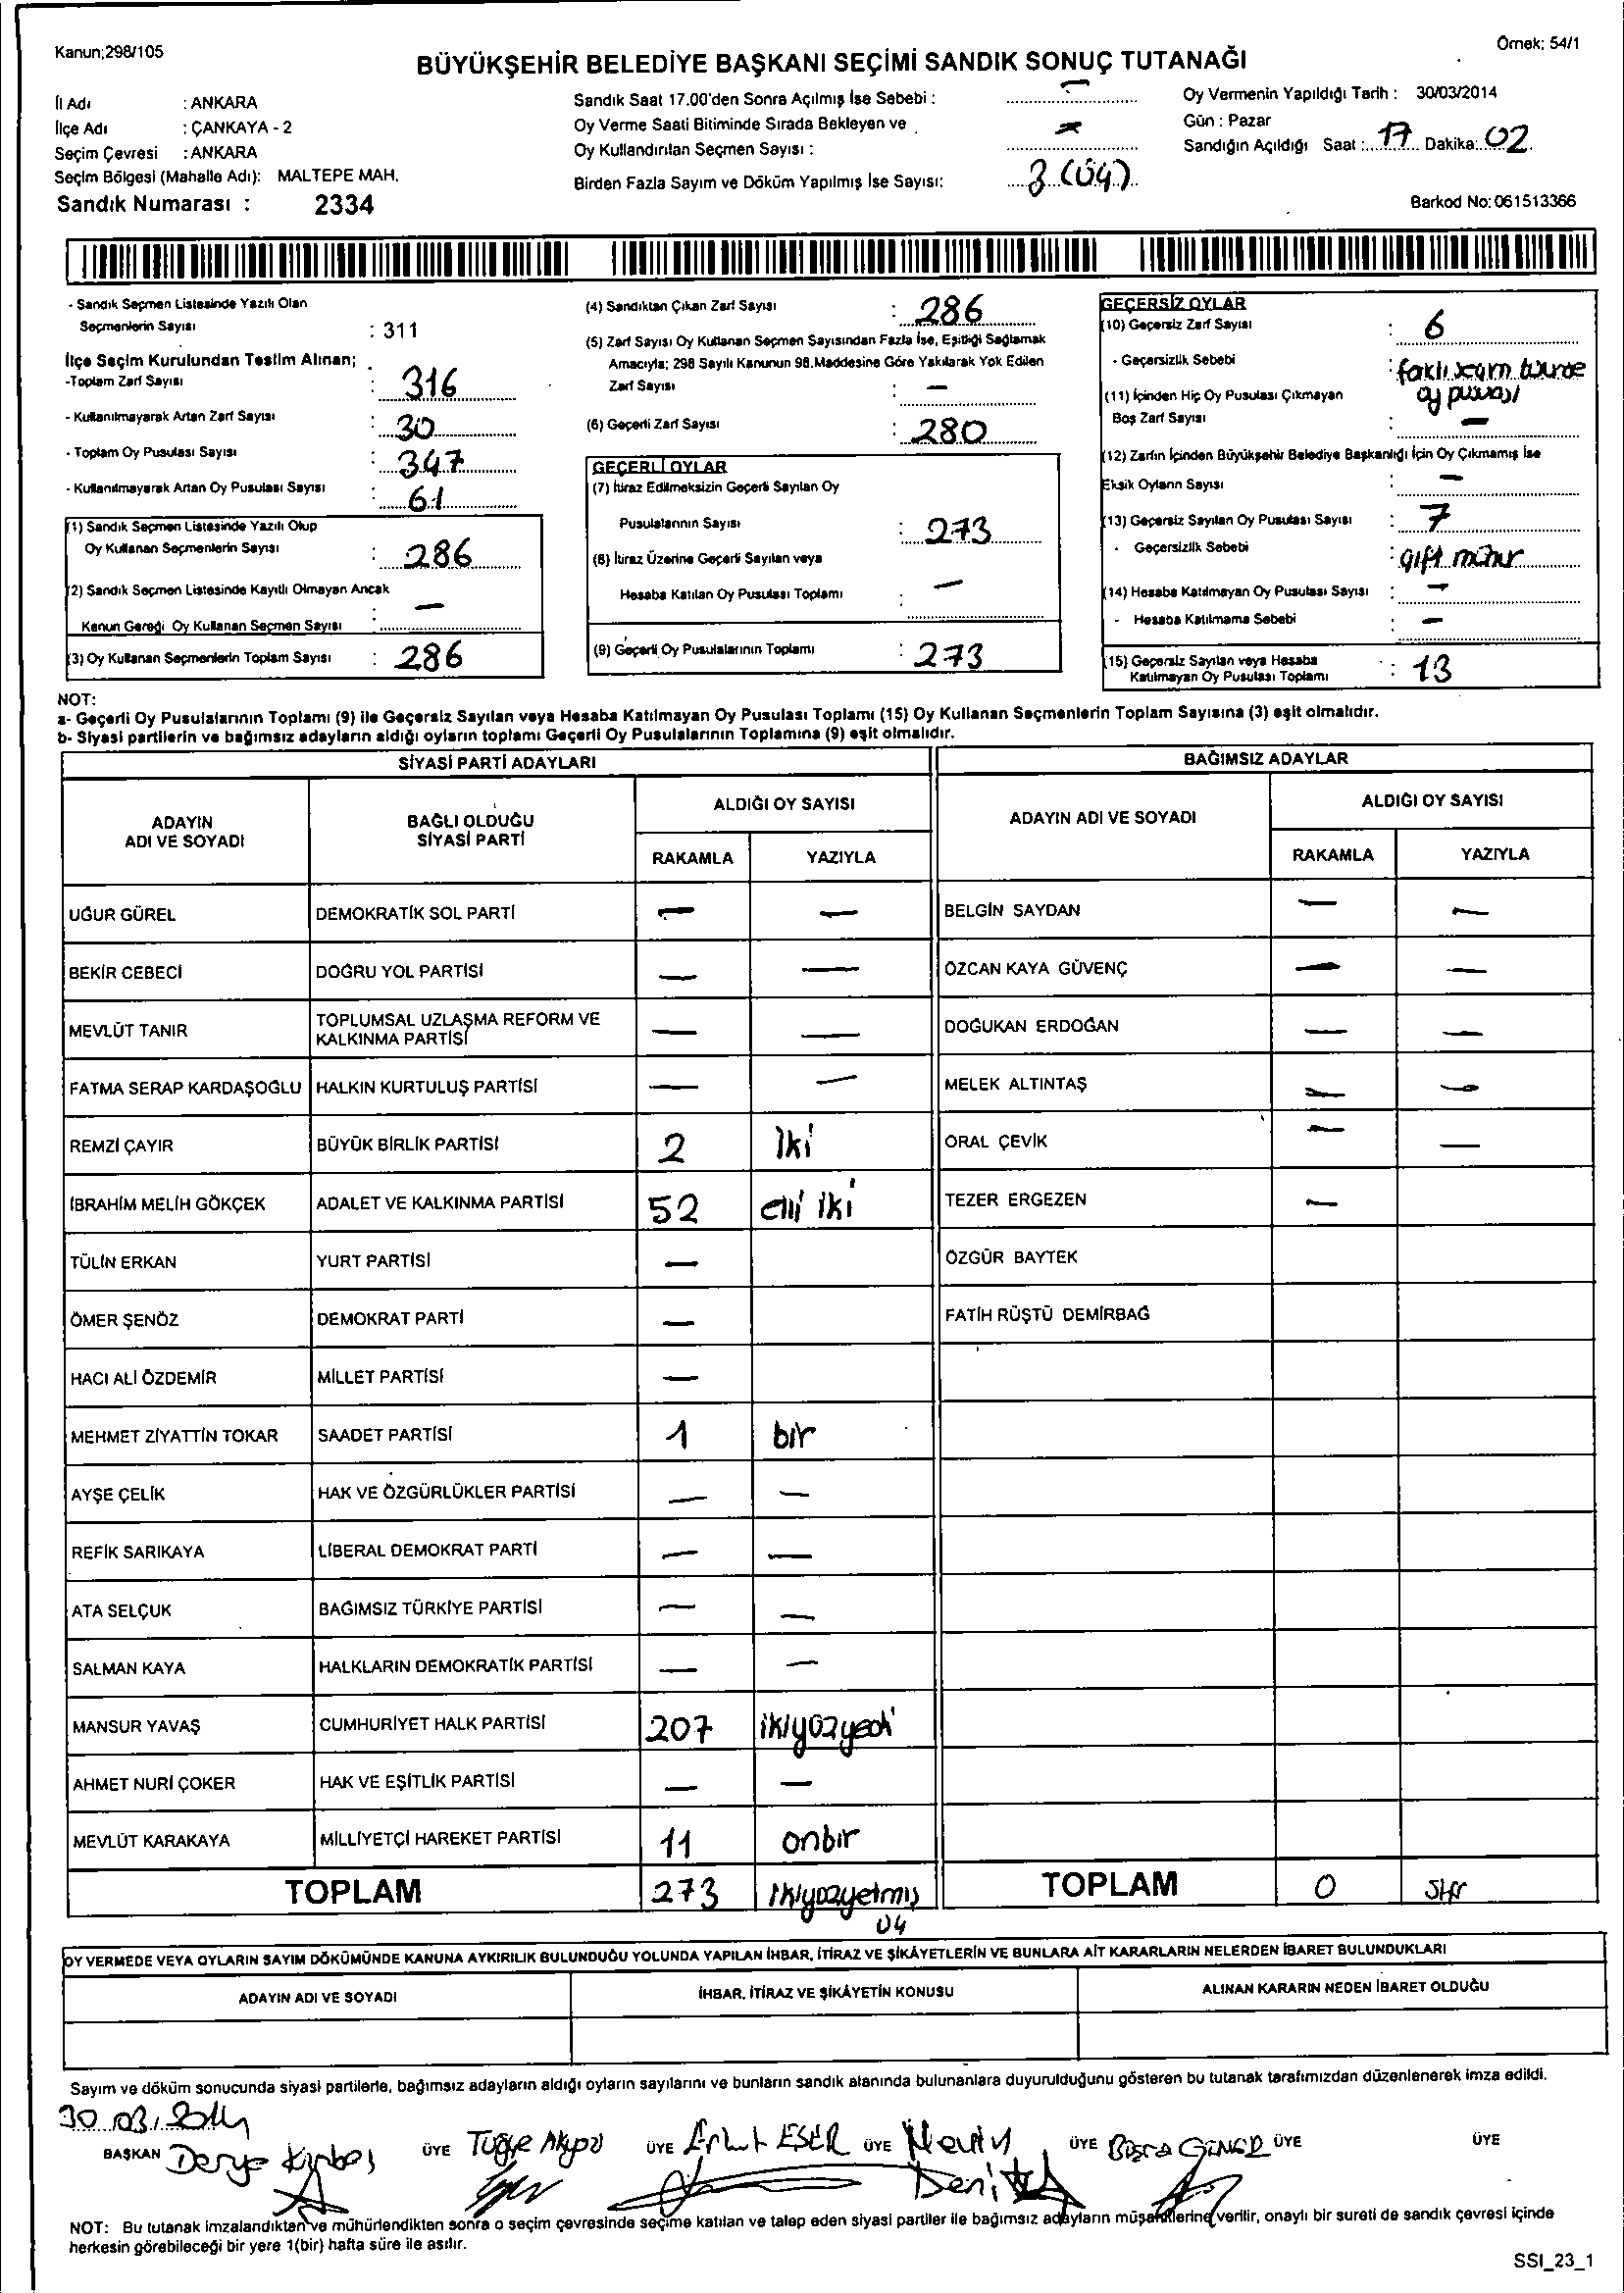 Kanun;298/105
Örnek: 54/1
BÜYÜKŞEHİR BELEDİYE BAŞKANI SEÇİMİ SANDIK SONUÇ TUTANAĞI
İl Adı : ANKARA
İlçe Adı : ÇANKAYA - 2
Seçim Çevresi : ANKARA
Seçim Bölgesi (Mahalle Adı): MALTEPE MAH.
Sandık Numarası : 2334
Sandık Saat 17.00'den Sonra Açılmış İse Sebebi : –
Oy Verme Saati Bitiminde Sırada Bekleyen ve
Oy Kullandırılan Seçmen Sayısı : –
Birden Fazla Sayım ve Döküm Yapılmış İse Sayısı: 3 (üç)
Oy Vermenin Yapıldığı Tarih : 30/03/2014
Gün : Pazar
Sandığın Açıldığı Saat : 17 Dakika: 02
Barkod No: 061513366
- Sandık Seçmen Listesinde Yazılı Olan
Seçmenlerin Sayısı : 311
İlçe Seçim Kurulundan Teslim Alınan;
-Toplam Zarf Sayısı : 316
- Kullanılmayarak Artan Zarf Sayısı : 30
- Toplam Oy Pusulası Sayısı : 347
- Kullanılmayarak Artan Oy Pusulası Sayısı : 61
(1) Sandık Seçmen Listesinde Yazılı Olup
Oy Kullanan Seçmenlerin Sayısı : 286
(2) Sandık Seçmen Listesinde Kayıtlı Olmayan Ancak
Kanun Gereği Oy Kullanan Seçmen Sayısı : –
(3) Oy Kullanan Seçmenlerin Toplam Sayısı : 286
(4) Sandıktan Çıkan Zarf Sayısı : 286
(5) Zarf Sayısı Oy Kullanan Seçmen Sayısından Fazla İse, Eşitliği Sağlamak
Amacıyla; 298 Sayılı Kanunun 98.Maddesine Göre Yakılarak Yok Edilen
Zarf Sayısı : –
(6) Geçerli Zarf Sayısı : 280
GEÇERLİ OYLAR
(7) İtiraz Edilmeksizin Geçerli Sayılan Oy
Pusulalarının Sayısı : 273
(8) İtiraz Üzerine Geçerli Sayılan veya
Hesaba Katılan Oy Pusulası Toplamı : –
(9) Geçerli Oy Pusulalarının Toplamı : 273
GEÇERSİZ OYLAR
(10) Geçersiz Zarf Sayısı : 6
- Geçersizlik Sebebi : farklı
oy pusulası
(11) İçinden Hiç Oy Pusulası Çıkmayan
Boş Zarf Sayısı : –
(12) Zarfın İçinden Büyükşehir Belediye Başkanlığı İçin Oy Çıkmamış İse
Eksik Oyların Sayısı : –
(13) Geçersiz Sayılan Oy Pusulası Sayısı : 7
- Geçersizlik Sebebi : çift mühür
(14) Hesaba Katılmayan Oy Pusulası Sayısı : –
- Hesaba Katılmama Sebebi : –
(15) Geçersiz Sayılan veya Hesaba
Katılmayan Oy Pusulası Toplamı : 13
NOT:
a- Geçerli Oy Pusulalarının Toplamı (9) ile Geçersiz Sayılan veya Hesaba Katılmayan Oy Pusulası Toplamı (15) Oy Kullanan Seçmenlerin Toplam Sayısına (3) eşit olmalıdır.
b- Siyasi partilerin ve bağımsız adayların aldığı oyların toplamı Geçerli Oy Pusulalarının Toplamına (9) eşit olmalıdır.
SİYASİ PARTİ ADAYLARI
ADAYIN ADI VE SOYADI BAĞLI OLDUĞU SİYASİ PARTİ ALDIĞI OY SAYISI
RAKAMLA YAZIYLA
UĞUR GÜREL DEMOKRATİK SOL PARTİ – –
BEKİR CEBECİ DOĞRU YOL PARTİSİ – –
MEVLÜT TANIR TOPLUMSAL UZLAŞMA REFORM VE KALKINMA PARTİSİ – –
FATMA SERAP KARDAŞOĞLU HALKIN KURTULUŞ PARTİSİ – –
REMZİ ÇAYIR BÜYÜK BİRLİK PARTİSİ 2 iki
İBRAHİM MELİH GÖKÇEK ADALET VE KALKINMA PARTİSİ 52 elli iki
TÜLİN ERKAN YURT PARTİSİ –
ÖMER ŞENÖZ DEMOKRAT PARTİ –
HACI ALİ ÖZDEMİR MİLLET PARTİSİ –
MEHMET ZİYATTİN TOKAR SAADET PARTİSİ 1 bir
AYŞE ÇELİK HAK VE ÖZGÜRLÜKLER PARTİSİ – –
REFİK SARIKAYA LİBERAL DEMOKRAT PARTİ – –
ATA SELÇUK BAĞIMSIZ TÜRKİYE PARTİSİ – –
SALMAN KAYA HALKLARIN DEMOKRATİK PARTİSİ – –
MANSUR YAVAŞ CUMHURİYET HALK PARTİSİ 207 ikiyüzyedi
AHMET NURİ ÇOKER HAK VE EŞİTLİK PARTİSİ – –
MEVLÜT KARAKAYA MİLLİYETÇİ HAREKET PARTİSİ 11 onbir
TOPLAM 273 ikiyüzyetmiş
üç
BAĞIMSIZ ADAYLAR
ADAYIN ADI VE SOYADI ALDIĞI OY SAYISI
RAKAMLA YAZIYLA
BELGİN SAYDAN – –
ÖZCAN KAYA GÜVENÇ – –
DOĞUKAN ERDOĞAN – –
MELEK ALTINTAŞ – –
ORAL ÇEVİK – –
TEZER ERGEZEN –
ÖZGÜR BAYTEK
FATİH RÜŞTÜ DEMİRBAĞ
TOPLAM 0 sıfır
OY VERMEDE VEYA OYLARIN SAYIM DÖKÜMÜNDE KANUNA AYKIRILIK BULUNDUĞU YOLUNDA YAPILAN İHBAR, İTİRAZ VE ŞİKÂYETLERİN VE BUNLARA AİT KARARLARIN NELERDEN İBARET BULUNDUKLARI
ADAYIN ADI VE SOYADI İHBAR, İTİRAZ VE ŞİKÂYETİN KONUSU ALINAN KARARIN NEDEN İBARET OLDUĞU
Sayım ve döküm sonucunda siyasi partilerle, bağımsız adayların aldığı oyların sayılarını ve bunların sandık alanında bulunanlara duyurulduğunu gösteren bu tutanak tarafımızdan düzenlenerek imza edildi.
30.03.2014
BAŞKAN Derya ÜYE Tuğçe ÜYE ESER ÜYE ÜYE Büşra ÜYE ÜYE
Deniz
NOT: Bu tutanak imzalandıktan ve mühürlendikten sonra o seçim çevresinde seçime katılan ve talep eden siyasi partiler ile bağımsız adayların müşahitlerine verilir, onaylı bir sureti de sandık çevresi içinde
herkesin görebileceği bir yere 1(bir) hafta süre ile asılır.
SSI_23_1